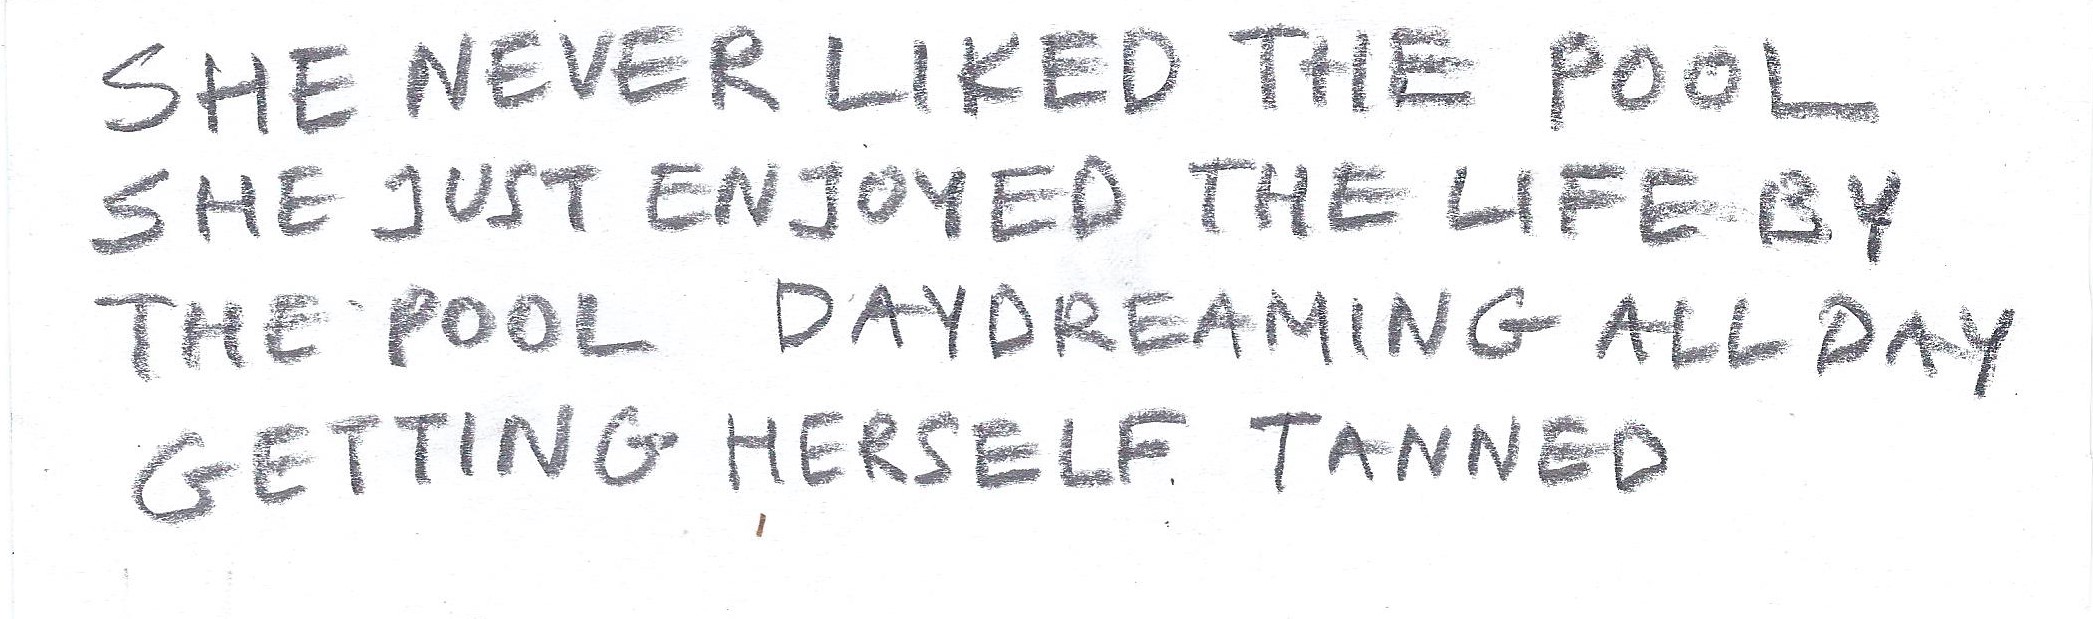 SHE NEVER LIKED THE POOL
SHE JUST ENJOYED THE LIFE BY
THE POOL DAYDREAMING ALL DAY
GETTING HERSELF TANNED